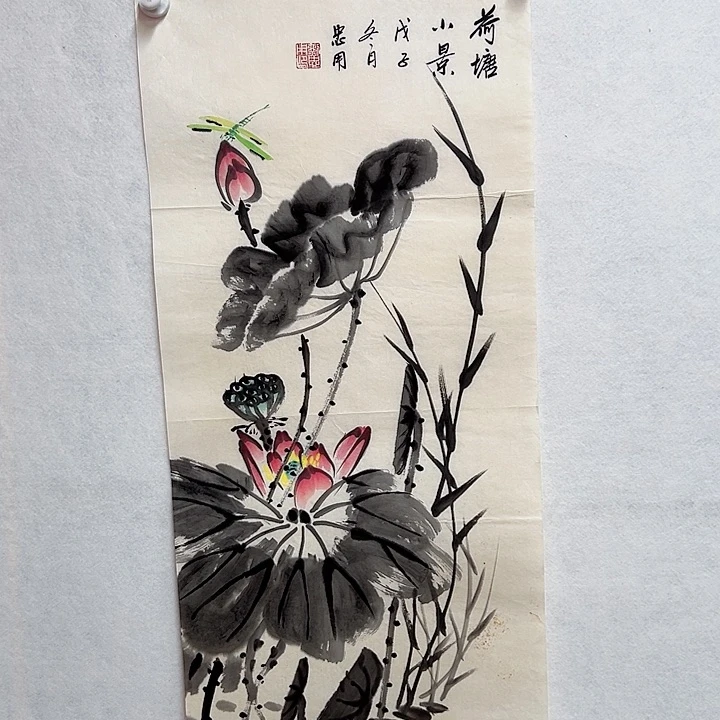 荷塘
小景
戊子
冬月
忠用